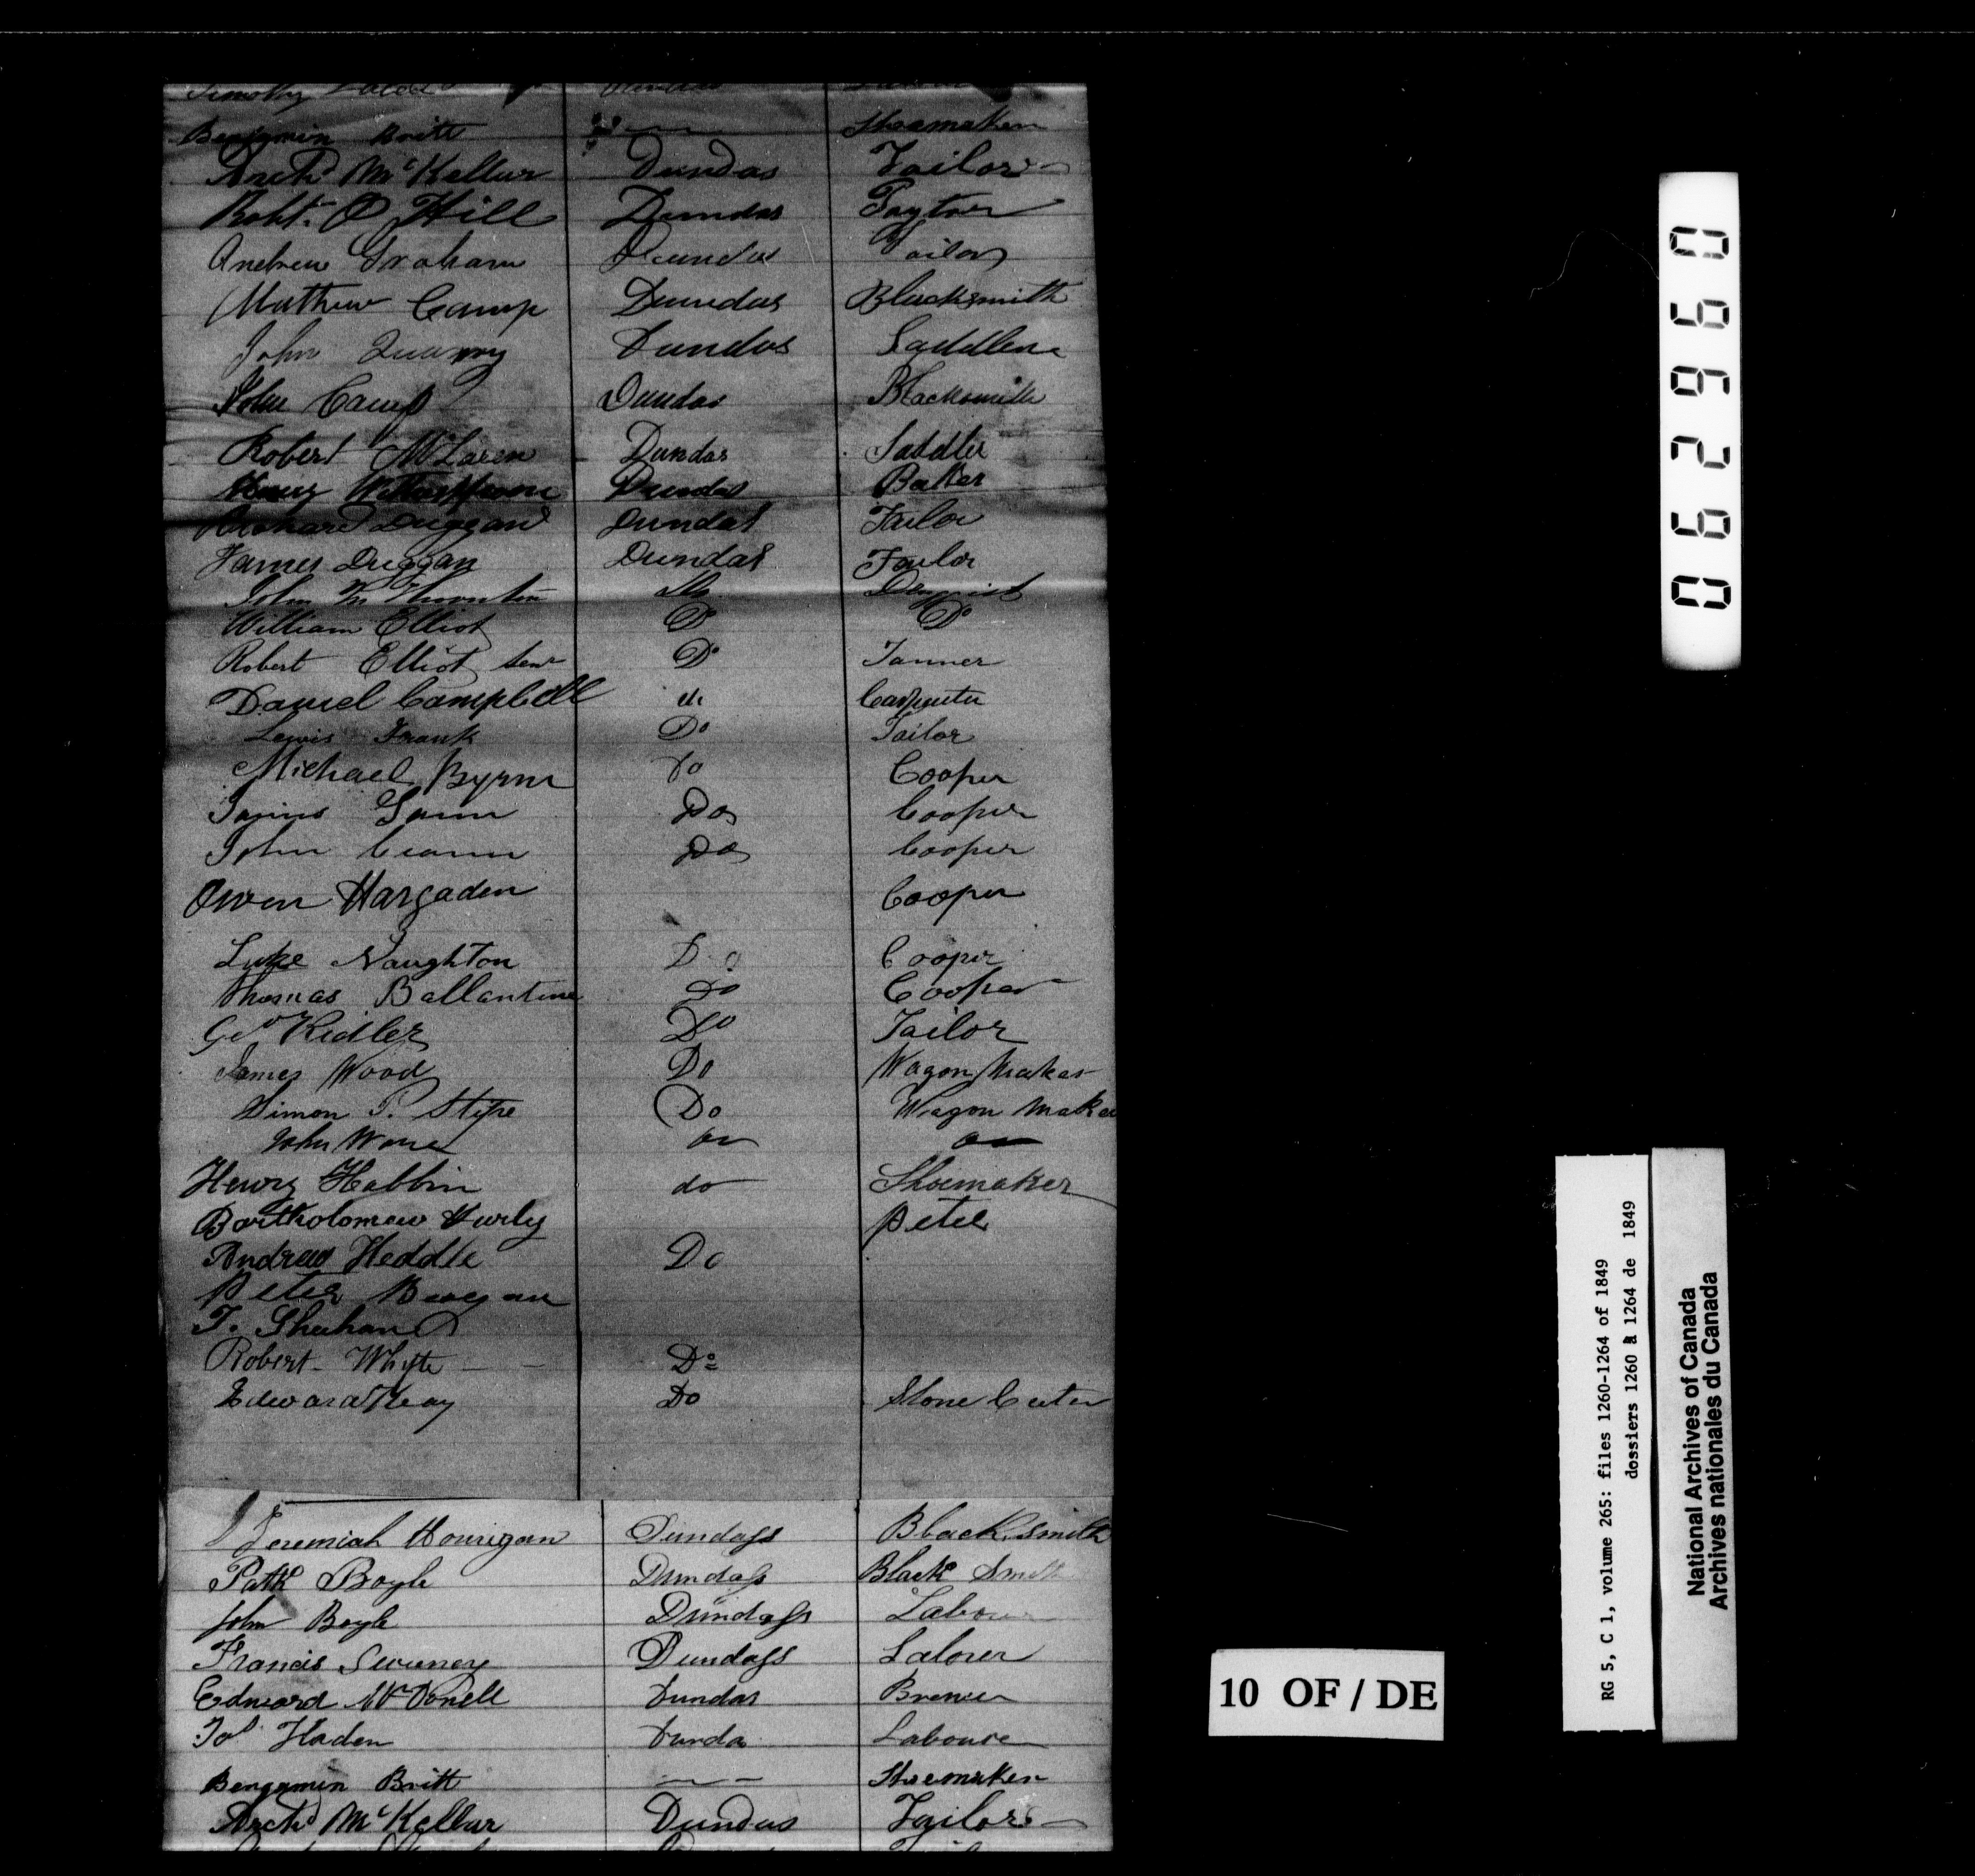 Timothy Dundas
Benjamin Britt Shoemaker
Archd McKellar Dundas Tailor
Robt. O Hill Dundas
Andrew Graham Dundas Tailor
Mathew Camp Dundas Blacksmith
John Quarry Dundas Saddler
John Camp Dundas Blacksmith
Robert McLaren Dundas Saddler
Henry Dundas Baker
Richard Duggan Dundas Tailor
James Duggan Dundas Tailor
John Thornton Do
William Elliot Do Do
Robert Elliot Senr Do Tanner
Daniel Campbell do Carpenter
Lewis Frank Do Tailor
Michael Byrne Do Cooper
Do Cooper
John Do Cooper
Owen Hargaden Cooper
Luke Naughton Do Cooper
Thomas Ballantine Do Cooper
Geo Ridler Do Tailor
James Wood Do Wagon Maker
Simon P. Stipe Do Wagon Maker
John Ware Do Do
Henry Habbin do Shoemaker
Bartholomew Hurly Peter
Andrew Heddle Do
Peter
T. Shuhan
Robert Whyte Do
Edward Do Stone Cutter
Jeremiah Hourigan Dundass Black Smith
Patk Boyle Dundass Black Smith
John Boyle Dundass Labour
Francis Sweeney Dundass Laborer
Edward McDonell Dundas Brewer
Haden Dundas Labourer
Benjamin Britt Shoemaker
Archd McKellar Dundas Tailor
062960
10 OF / DE
RG 5, C 1, volume 265: files 1260-1264 of 1849
dossiers 1260 à 1264 de 1849
National Archives of Canada
Archives nationales du Canada